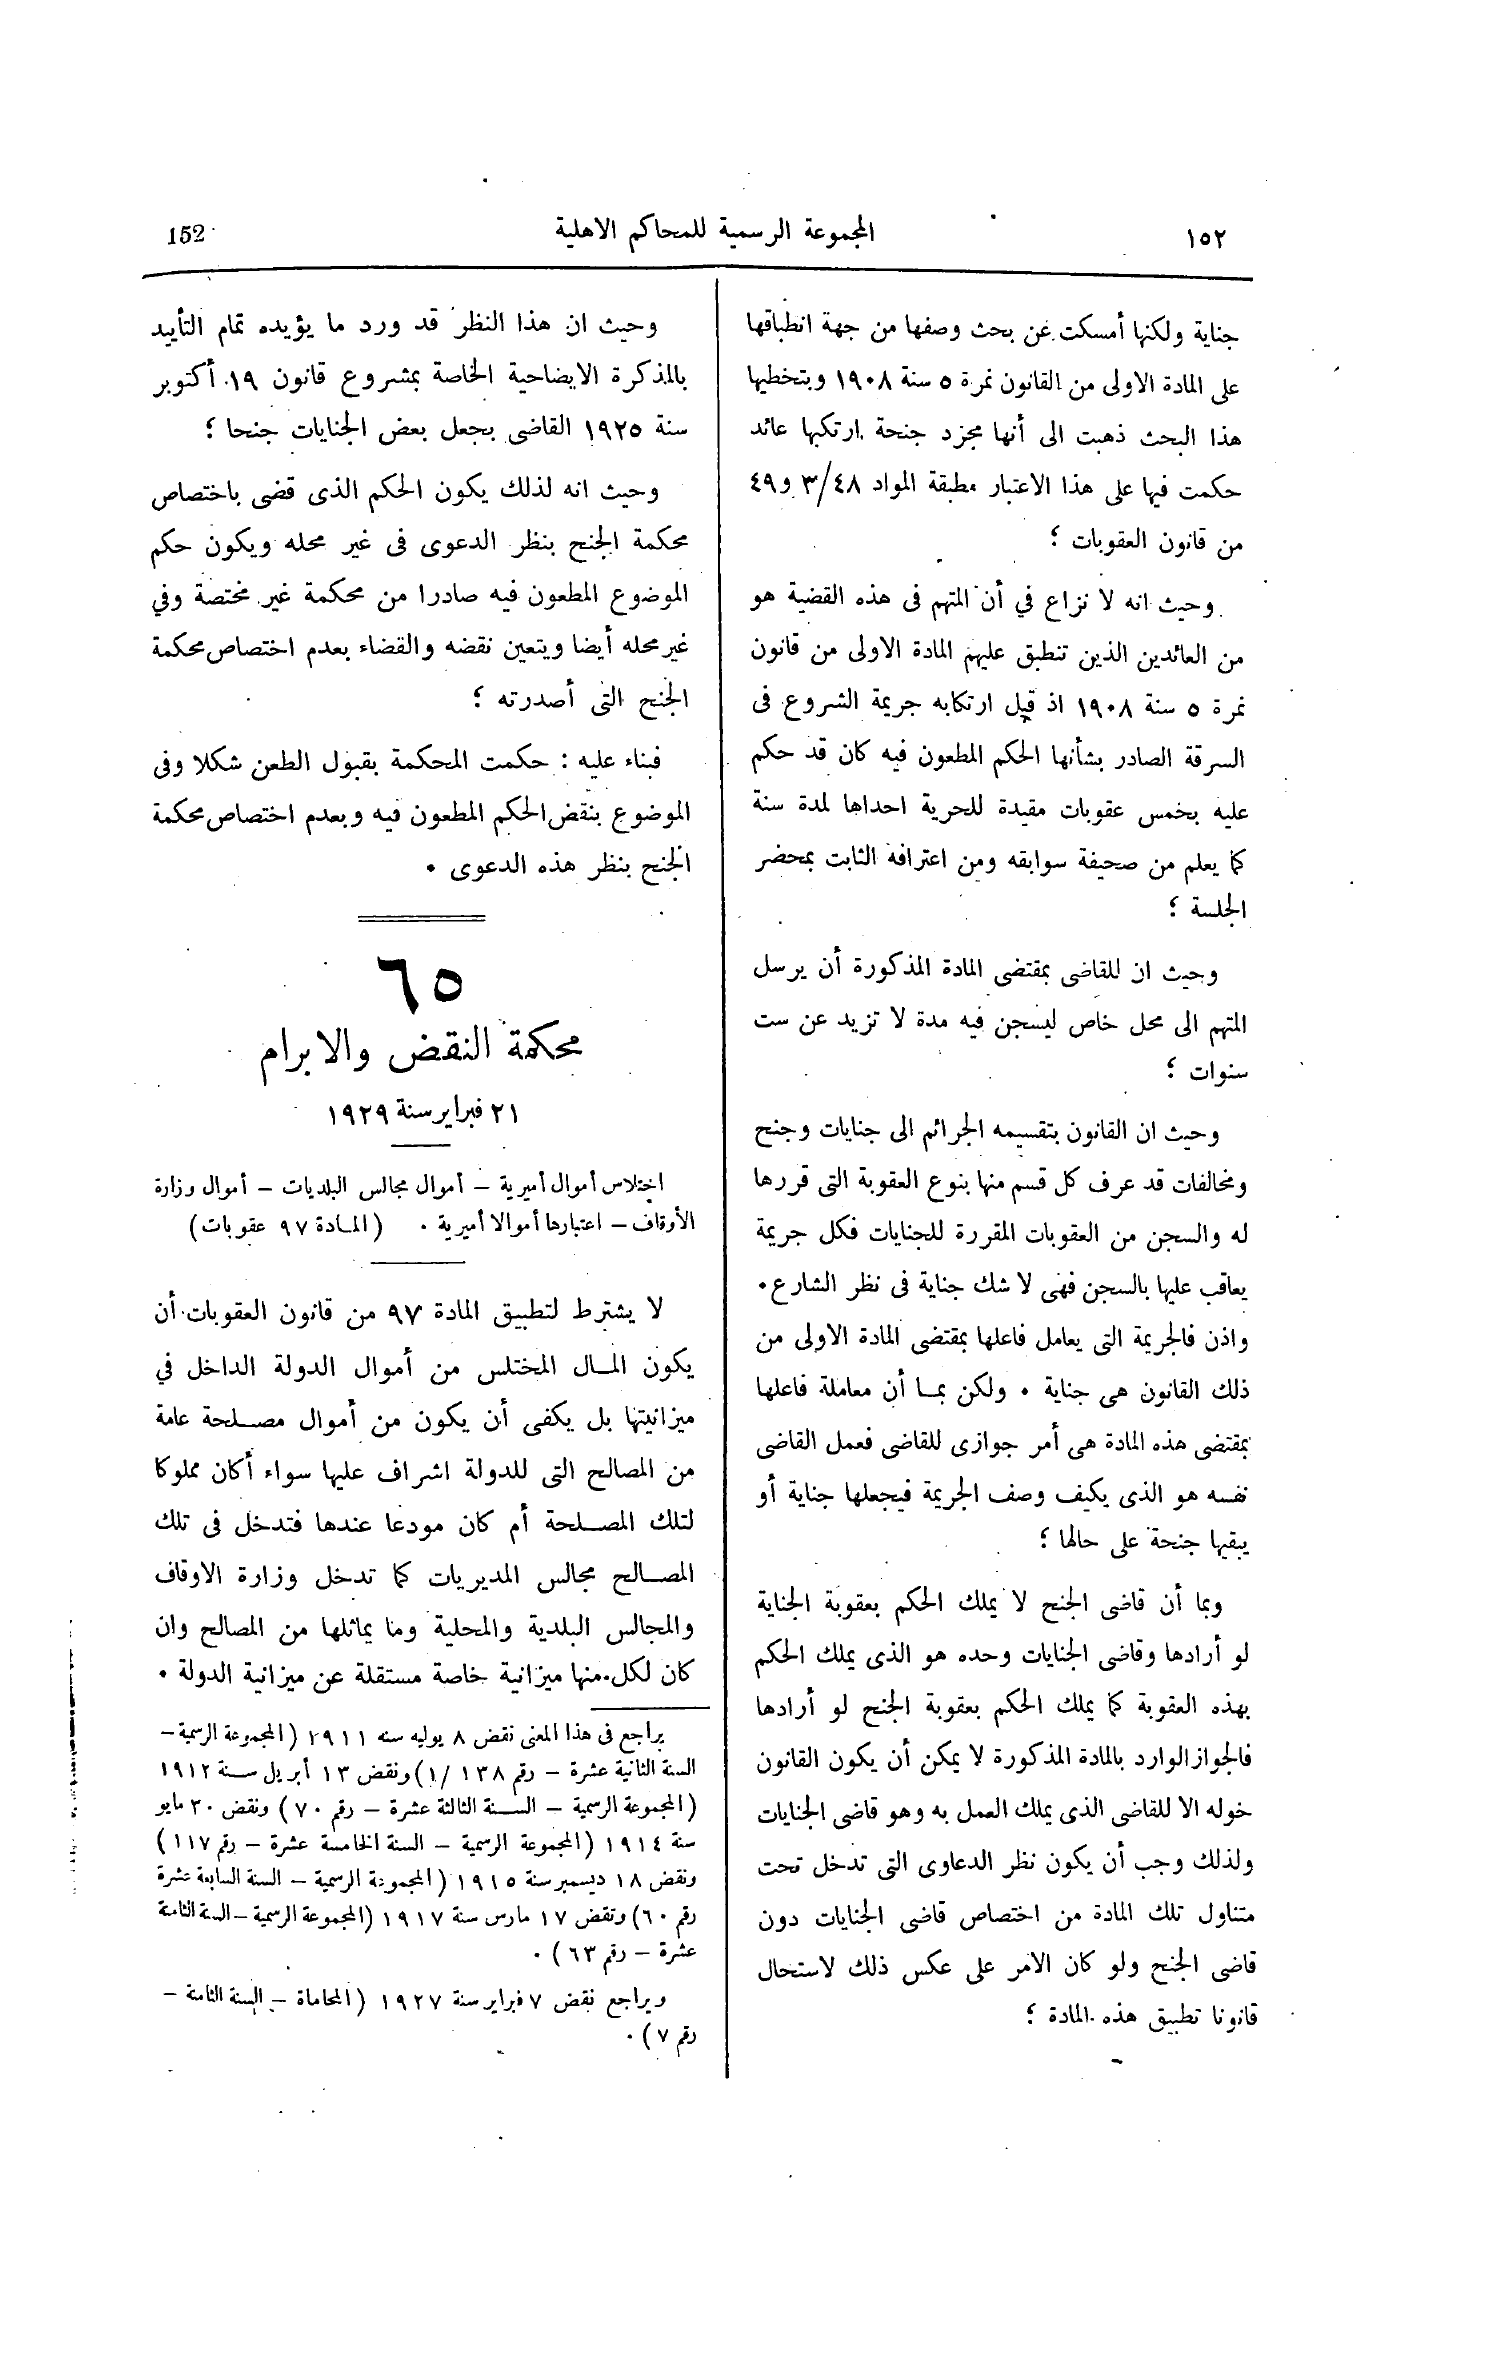 ١٥٢
المجموعة الرسمية للمحاكم الاهلية
152
جناية ولكنها أمسكت عن بحث وصفها من جهة انطباقها
على المادة الاولى من القانون نمرة ٥ سنة ١٩٠٨ وبتخطيها
هذا البحث ذهبت الى أنها مجرد جنحة ارتكبها عائد
حكمت فيها على هذا الاعتبار مطبقة المواد ٣/٤٨ و٤٩
من قانون العقوبات ؛
وحيث انه لا نزاع في أن المتهم فى هذه القضية هو
من العائدين الذين تنطبق عليهم المادة الاولى من قانون
نمرة ٥ سنة ١٩٠٨ اذ قبل ارتكابه جريمة الشروع فى
السرقة الصادر بشأنها الحكم المطعون فيه كان قد حكم
عليه بخمس عقوبات مقيدة للحرية احداها لمدة سنة
كما يعلم من صحيفة سوابقه ومن اعترافه الثابت بمحضر
الجلسة ؛
وحيث ان للقاضى بمقتضى المادة المذكورة أن يرسل
المتهم الى محل خاص ليسجن فيه مدة لا تزيد عن ست
سنوات ؛
وحيث ان القانون بتقسيمه الجرائم الى جنايات وجنح
ومخالفات قد عرف كل قسم منها بنوع العقوبة التى قررها
له والسجن من العقوبات المقررة للجنايات فكل جريمة
يعاقب عليها بالسجن فهى لا شك جناية فى نظر الشارع .
واذن فالجريمة التى يعامل فاعلها بمقتضى المادة الاولى من
ذلك القانون هى جناية . ولكن بما أن معاملة فاعلها
بمقتضى هذه المادة هى أمر جوازى للقاضى فعمل القاضى
نفسه هو الذى يكيف وصف الجريمة فيجعلها جناية أو
يبقيها جنحة على حالها ؛
وبما أن قاضى الجنح لا يملك الحكم بعقوبة الجناية
لو أرادها وقاضى الجنايات وحده هو الذى يملك الحكم
بهذه العقوبة كما يملك الحكم بعقوبة الجنح لو أرادها
فالجواز الوارد بالمادة المذكورة لا يمكن أن يكون القانون
خوله الا للقاضى الذى يملك العمل به وهو قاضى الجنايات
ولذلك وجب أن يكون نظر الدعاوى التى تدخل تحت
متناول تلك المادة من اختصاص قاضى الجنايات دون
قاضى الجنح ولو كان الامر على عكس ذلك لاستحال
قانونا تطبيق هذه المادة ؛
وحيث ان هذا النظر قد ورد ما يؤيده تمام التأييد
بالمذكرة الايضاحية الخاصة بمشروع قانون ١٩ أكتوبر
سنة ١٩٢٥ القاضى بجعل بعض الجنايات جنحا ؛
وحيث انه لذلك يكون الحكم الذى قضى باختصاص
محكمة الجنح بنظر الدعوى فى غير محله ويكون حكم
الموضوع المطعون فيه صادرا من محكمة غير مختصة وفي
غير محله أيضا ويتعين نقضه والقضاء بعدم اختصاص محكمة
الجنح التى أصدرته ؛
فبناء عليه : حكمت المحكمة بقبول الطعن شكلا وفى
الموضوع بنقض الحكم المطعون فيه وبعدم اختصاص محكمة
الجنح بنظر هذه الدعوى .
٦٥
محكمة النقض والابرام
٢١ فبراير سنة ١٩٢٩
اختلاس أموال أميرية – أموال مجالس البلديات – أموال وزارة
الأوقاف – اعتبارها أموالا أميرية . (المادة ٩٧ عقوبات)
لا يشترط لتطبيق المادة ٩٧ من قانون العقوبات أن
يكون المال المختلس من أموال الدولة الداخل في
ميزانيتها بل يكفى أن يكون من أموال مصلحة عامة
من المصالح التى للدولة اشراف عليها سواء أكان مملوكا
لتلك المصلحة أم كان مودعا عندها فتدخل فى تلك
المصالح مجالس المديريات كما تدخل وزارة الاوقاف
والمجالس البلدية والمحلية وما يماثلها من المصالح وان
كان لكل منها ميزانية خاصة مستقلة عن ميزانية الدولة .
يراجع فى هذا المعنى نقض ٨ يوليه سنه ١٩١١ (المجموعة الرسمية –
السنة الثانية عشرة – رقم ١٣٨ /١) ونقض ١٣ أبريل سنة ١٩١٢
(المجموعة الرسمية – السنة الثالثة عشرة – رقم ٧٠) ونقض ٣٠ مايو
سنة ١٩١٤ (المجموعة الرسمية – السنة الخامسة عشرة – رقم ١١٧)
ونقض ١٨ ديسمبر سنة ١٩١٥ (المجموعة الرسمية – السنة السابعة عشرة
رقم ٦٠) ونقض ١٧ مارس سنة ١٩١٧ (المجموعة الرسمية – السنة الثامنة
عشرة – رقم ٦٣) .
ويراجع نقض ٧ فبراير سنة ١٩٢٧ (المحاماة – السنة الثامنة –
رقم ٧) .